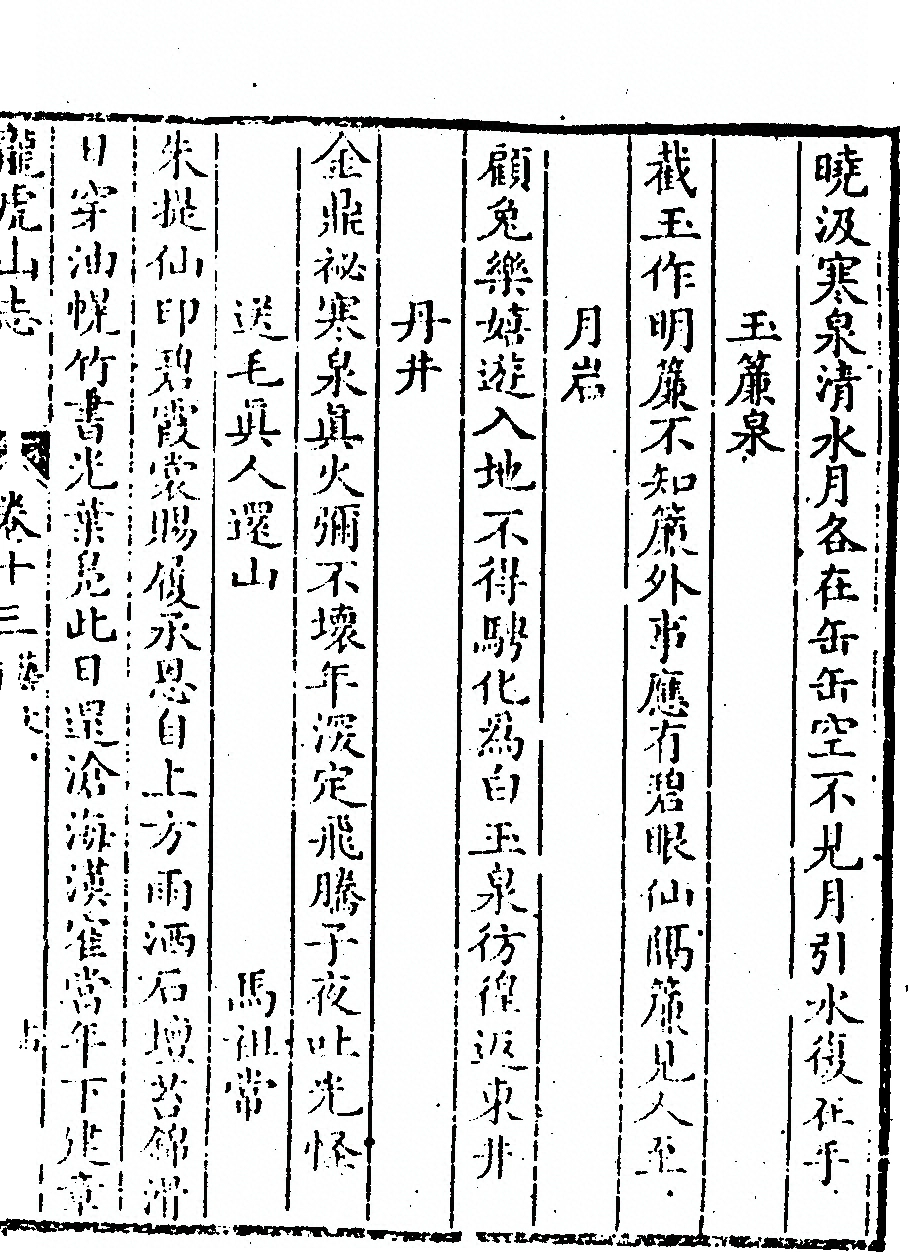 曉汲寒泉清水月各在缶缶空不見月引水復在手
玉簾泉
截玉作明簾不知簾外事應有碧眼仙隔簾見人至
月岩
顧兔樂嬉遊入地不得騁化為白玉泉彷徨返東井
丹井
金鼎祕寒泉眞火彌不壞年深定飛騰子夜吐光怪
送毛眞人還山 馬祖常
朱提仙印碧霞裳賜履承恩自上方雨洒石壇苔錦滑
日穿油幌竹書光葉凫此日還滄海漢隺當年下建章
龍虎山志 卷十三 藝文